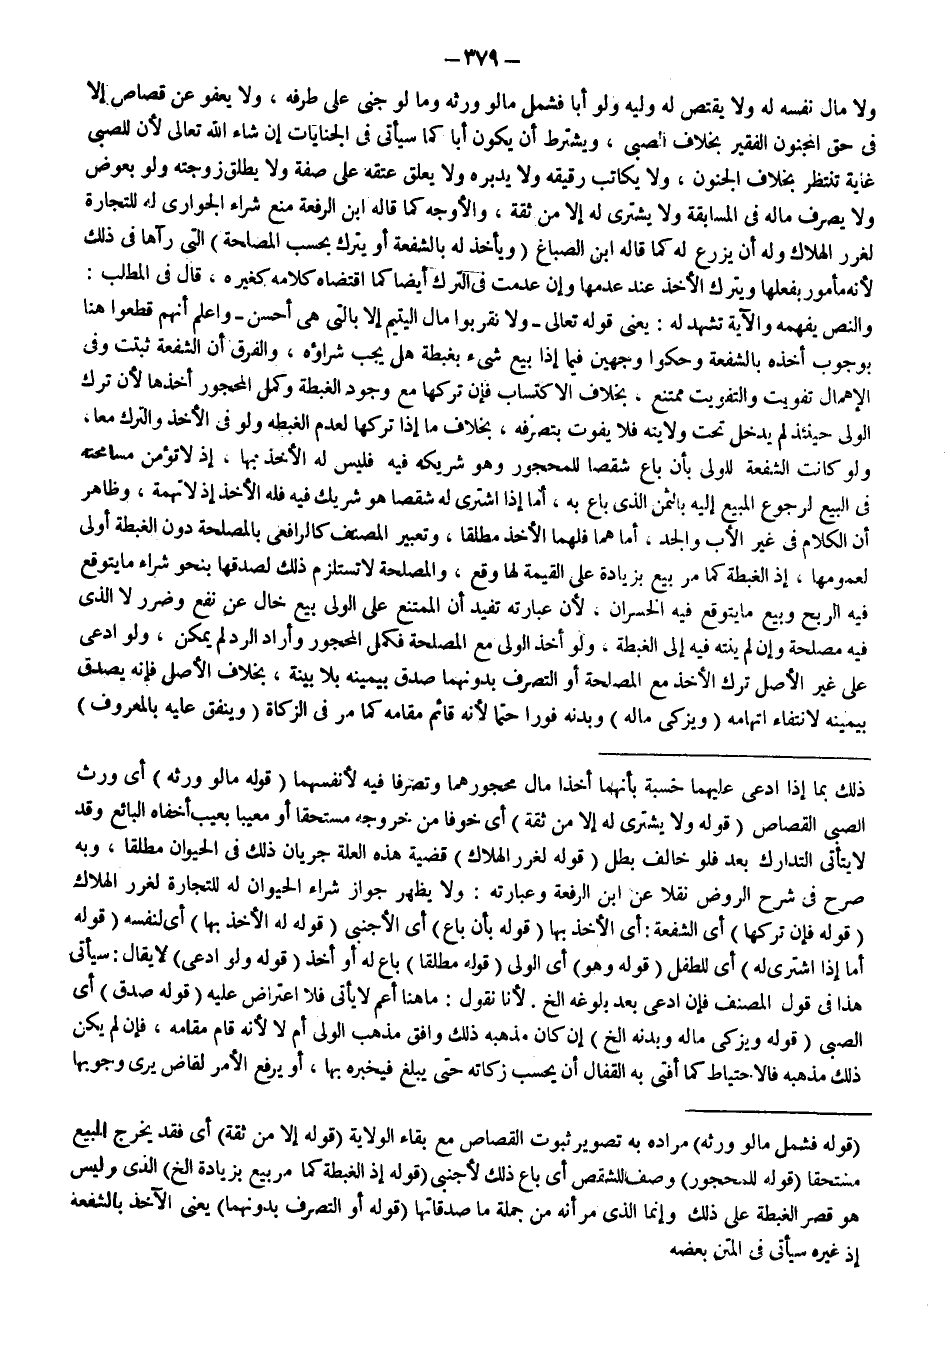 - ٣٧٩ -
ولا مال نفسه له ولا يقتص له وليه ولو أبا فشمل مالو ورثه وما لو جنى على طرفه ، ولا يعفو عن قصاص إلا
فى حق المجنون الفقير بخلاف الصبى ، ويشترط أن يكون أبا كما سيأتى فى الجنايات إن شاء الله تعالى لأن للصبى
غاية تنتظر بخلاف الجنون ، ولا يكاتب رقيقه ولا يدبره ولا يعلق عتقه على صفة ولا يطلق زوجته ولو بعوض
ولا يصرف ماله فى المسابقة ولا يشترى له إلا من ثقة ، والأوجه كما قاله ابن الرفعة منع شراء الجوارى له للتجارة
لغرر الهلاك وله أن يزرع له كما قاله ابن الصباغ ( ويأخذ له بالشفعة أو يترك بحسب المصلحة ) التى رآها فى ذلك
لأنه مأمور بفعلها ويترك الأخذ عند عدمها وإن عدمت فى الترك أيضا كما اقتضاه كلامه كغيره ، قال فى المطلب :
والنص يفهمه والآية تشهد له : يعنى قوله تعالى ـ ولا تقربوا مال اليتيم إلا بالتى هى أحسن ـ واعلم أنهم قطعوا هنا
بوجوب أخذه بالشفعة وحكوا وجهين فيما إذا بيع شىء بغبطة هل يجب شراؤه ، والفرق أن الشفعة ثبتت وفى
الإهمال تفويت والتفويت ممتنع ، بخلاف الاكتساب فإن تركها مع وجود الغبطة وكمل المحجور أخذها لأن ترك
الولى حينئذ لم يدخل تحت ولايته فلا يفوت بتصرفه ، بخلاف ما إذا تركها لعدم الغبطه ولو فى الأخذ والترك معا ،
ولو كانت الشفعة للولى بأن باع شقصا للمحجور وهو شريكه فيه فليس له الأخذ بها ، إذ لا تؤمن مسامحته
فى البيع لرجوع المبيع إليه بالثمن الذى باع به ، أما إذا اشترى له شقصا هو شريك فيه فله الأخذ إذ لا تهمة ، وظاهر
أن الكلام فى غير الأب والجد ، أما هما فلهما الأخذ مطلقا ، وتعبير المصنف كالرافعى بالمصلحة دون الغبطة أولى
لعمومها ، إذ الغبطة كما مر بيع بزيادة على القيمة لها وقع ، والمصلحة لا تستلزم ذلك لصدقها بنحو شراء مايتوقع
فيه الربح وبيع مايتوقع فيه الخسران ، لأن عبارته تفيد أن الممتنع على الولى بيع خال عن نفع وضرر لا الذى
فيه مصلحة وإن لم ينته فيه إلى الغبطة ، ولو أخذ الولى مع المصلحة فكمل المحجور وأراد الرد لم يمكن ، ولو ادعى
على غير الأصل ترك الأخذ مع المصلحة أو التصرف بدونهما صدق بيمينه بلا بينة ، بخلاف الأصلى فإنه يصدق
بيمينه لانتفاء اتهامه ( ويزكى ماله ) وبدنه فورا حتما لأنه قائم مقامه كما مر فى الزكاة ( وينفق عليه بالمعروف )
ذلك بما إذا ادعى عليهما حسبة بأنهما أخذا مال محجورهما وتصرفا فيه لأنفسهما ( قوله مالو ورثه ) أى ورث
الصبى القصاص ( قوله ولا يشترى له إلا من ثقة ) أى خوفا من خروجه مستحقا أو معيبا بعيب أخفاه البائع وقد
لا يتأتى التدارك بعد فلو خالف بطل ( قوله لغرر الهلاك ) قضية هذه العلة جريان ذلك فى الحيوان مطلقا ، وبه
صرح فى شرح الروض نقلا عن ابن الرفعة وعبارته : ولا يظهر جواز شراء الحيوان له للتجارة لغرر الهلاك
( قوله فإن تركها ) أى الشفعة : أى الأخذ بها ( قوله بأن باع ) أى الأجنبى ( قوله له الأخذ بها ) أى لنفسه ( قوله
أما إذا اشترى له ) أى للطفل ( قوله وهو ) أى الولى ( قوله مطلقا ) باع له أو أخذ ( قوله ولو ادعى ) لا يقال : سيأتى
هذا فى قول المصنف فإن ادعى بعد بلوغه الخ . لأنا نقول : ماهنا أعم لا يأتى فلا اعتراض عليه ( قوله صدق ) أى
الصبى ( قوله ويزكى ماله وبدنه الخ ) إن كان مذهبه ذلك وافق مذهب الولى أم لا لأنه قام مقامه ، فإن لم يكن
ذلك مذهبه فالاحتياط كما أفتى به القفال أن يحسب زكاته حتى يبلغ فيخبره بها ، أو يرفع الأمر لقاض يرى وجوبها
( قوله فشمل مالو ورثه ) مراده به تصوير ثبوت القصاص مع بقاء الولاية ( قوله إلا من ثقة ) أى فقد يخرج المبيع
مستحقا ( قوله للمحجور ) وصف للشقص أى باع ذلك لأجنبى ( قوله إذ الغبطة كما مر بيع بزيادة الخ ) الذى وليس
هو قصر الغبطة على ذلك وإنما الذى مر أنه من جملة ما صدقاتها ( قوله أو التصرف بدونهما ) يعنى الآخذ بالشفعة
إذ غيره سيأتى فى المتن بعضه